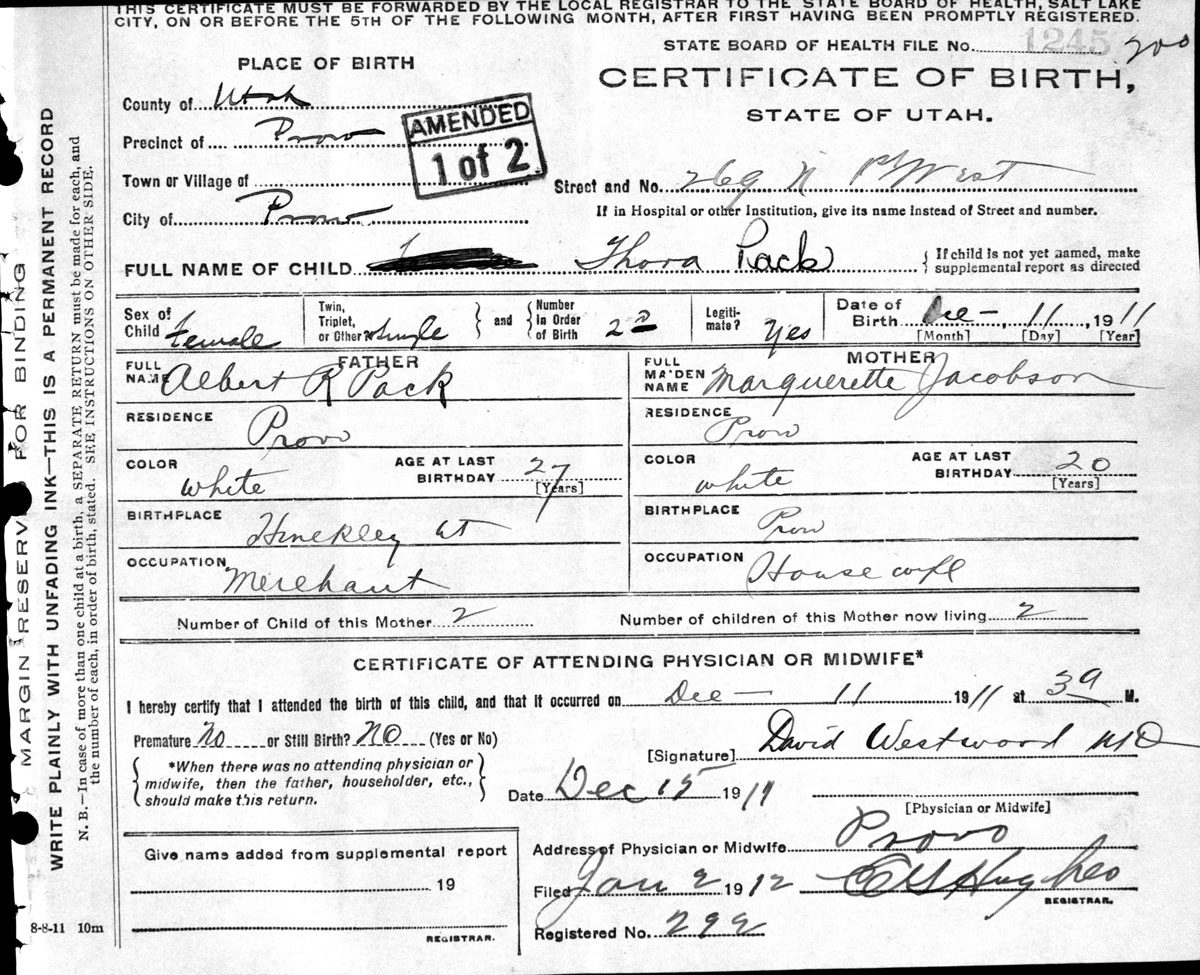 THIS CERTIFICATE MUST BE FORWARDED BY THE LOCAL REGISTRAR TO THE STATE BOARD OF HEALTH, SALT LAKE
CITY, ON OR BEFORE THE 5TH OF THE FOLLOWING MONTH, AFTER FIRST HAVING BEEN PROMPTLY REGISTERED.
STATE BOARD OF HEALTH FILE No. 1245 200
PLACE OF BIRTH
CERTIFICATE OF BIRTH,
STATE OF UTAH.
County of Utah
Precinct of Provo
AMENDED
1 of 2
Town or Village of
Street and No. 269 N West
City of Provo
If in Hospital or other Institution, give its name instead of Street and number.
FULL NAME OF CHILD Thora Pack
If child is not yet named, make
supplemental report as directed
Sex of Child Female
Twin, Triplet, or Other? Single
and
Number in Order of Birth 2nd
Legiti- mate? Yes
Date of Birth Dec - , 11 , 1911
[Month] [Day] [Year]
FATHER
FULL NAME Albert R Pack
RESIDENCE Provo
COLOR White
AGE AT LAST BIRTHDAY 27
[Years]
BIRTHPLACE Hinckley Ut
OCCUPATION Merchant
MOTHER
FULL MAIDEN NAME Marguerette Jacobson
RESIDENCE Provo
COLOR White
AGE AT LAST BIRTHDAY 20
[Years]
BIRTHPLACE Provo
OCCUPATION House wife
Number of Child of this Mother 2
Number of children of this Mother now living 2
CERTIFICATE OF ATTENDING PHYSICIAN OR MIDWIFE*
I hereby certify that I attended the birth of this child, and that it occurred on Dec - 11 1911 at M.
Premature No or Still Birth? NO (Yes or No)
*When there was no attending physician or
midwife, then the father, householder, etc.,
should make this return.
[Signature] David Westwood MD
Date Dec 15 1911
[Physician or Midwife]
Address of Physician or Midwife Provo
Give name added from supplemental report
19
REGISTRAR.
Filed Jan 2 1912 Hughes
REGISTRAR.
Registered No. 299
8-8-11 10m
MARGIN RESERVED FOR BINDING
WRITE PLAINLY WITH UNFADING INK—THIS IS A PERMANENT RECORD
N. B.—In case of more than one child at a birth, a SEPARATE RETURN must be made for each, and
the number of each, in order of birth, stated. SEE INSTRUCTIONS ON OTHER SIDE.